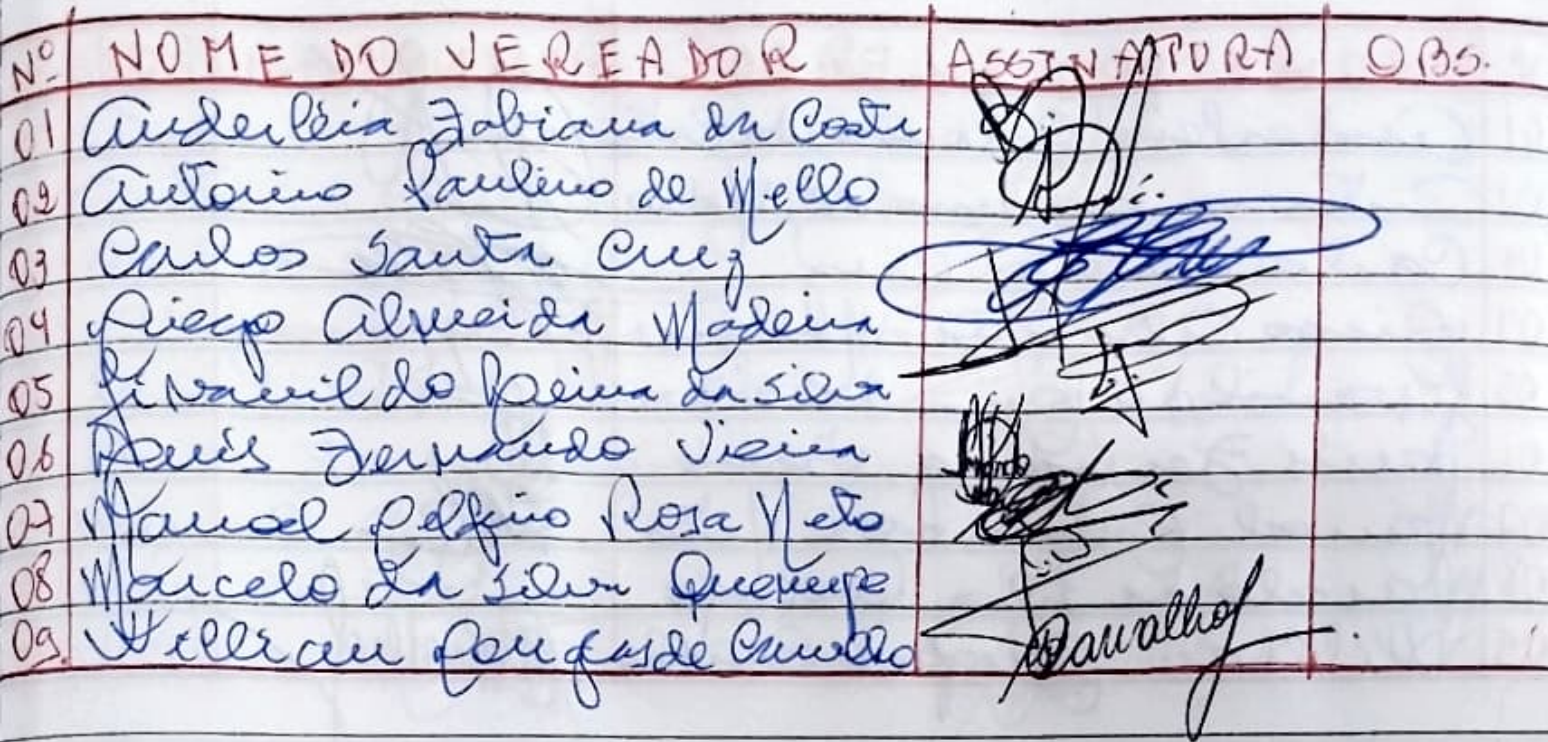 Nº NOME DO VEREADOR ASSINATURA OBS.
01 Anderléia Fabiana da Costa
02 Antonio Paulino de Mello
03 Carlos Santa Cruz
04 Diego Almeida Madeira
05 Givanildo da Silva
06 Luis Fernando Vieira
07 Manoel Delfino Rosa Neto
08 Marcelo da Silva
09. Willian de Carvalho Carvalho